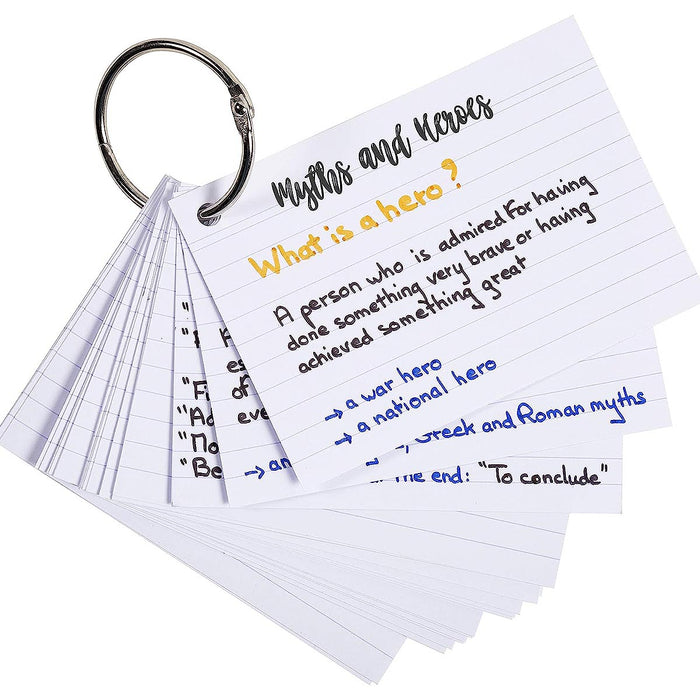 Myths and Heroes
What is a hero?
A person who is admired for having
done something very brave or having
achieved something great
→ a war hero
→ a national hero
Greek and Roman myths
the end: "To conclude"
of